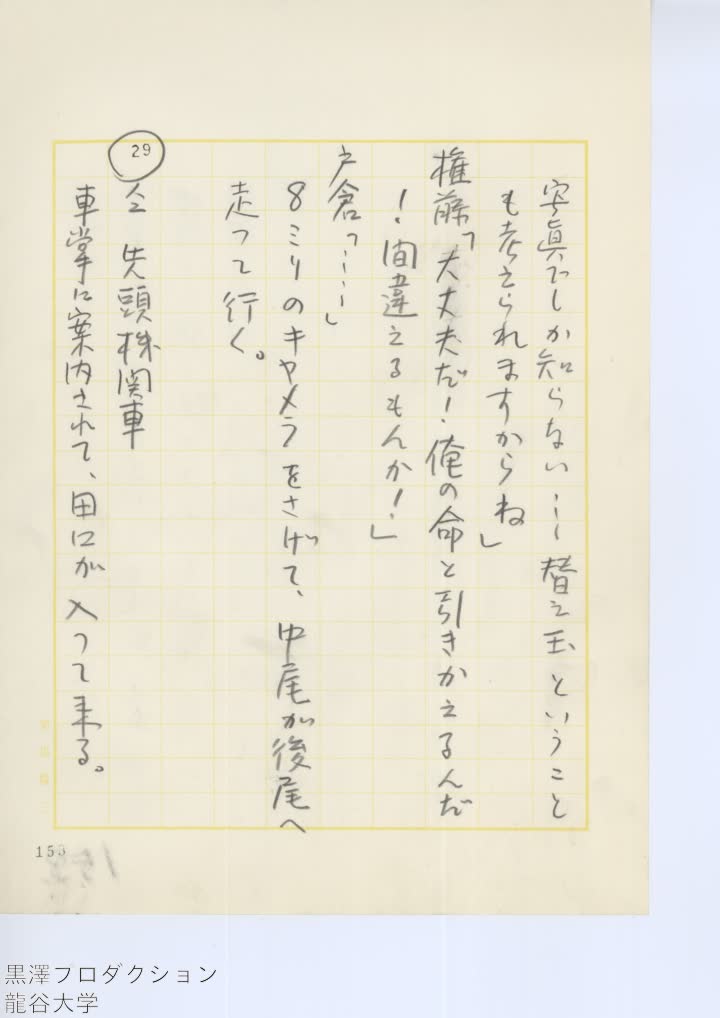 寫眞でしか知らない……替え玉ということ
も考えられますからね」
権藤「大丈夫だ！俺の命と引きかえるんだ
！間違えるもんか！」
戸倉「……」
８ミリのキャメラをさげて、中尾が後尾へ
走って行く。
29
仝 先頭機関車
車掌に案内されて、田口が入って来る。
153
黒澤プロダクション
龍谷大学